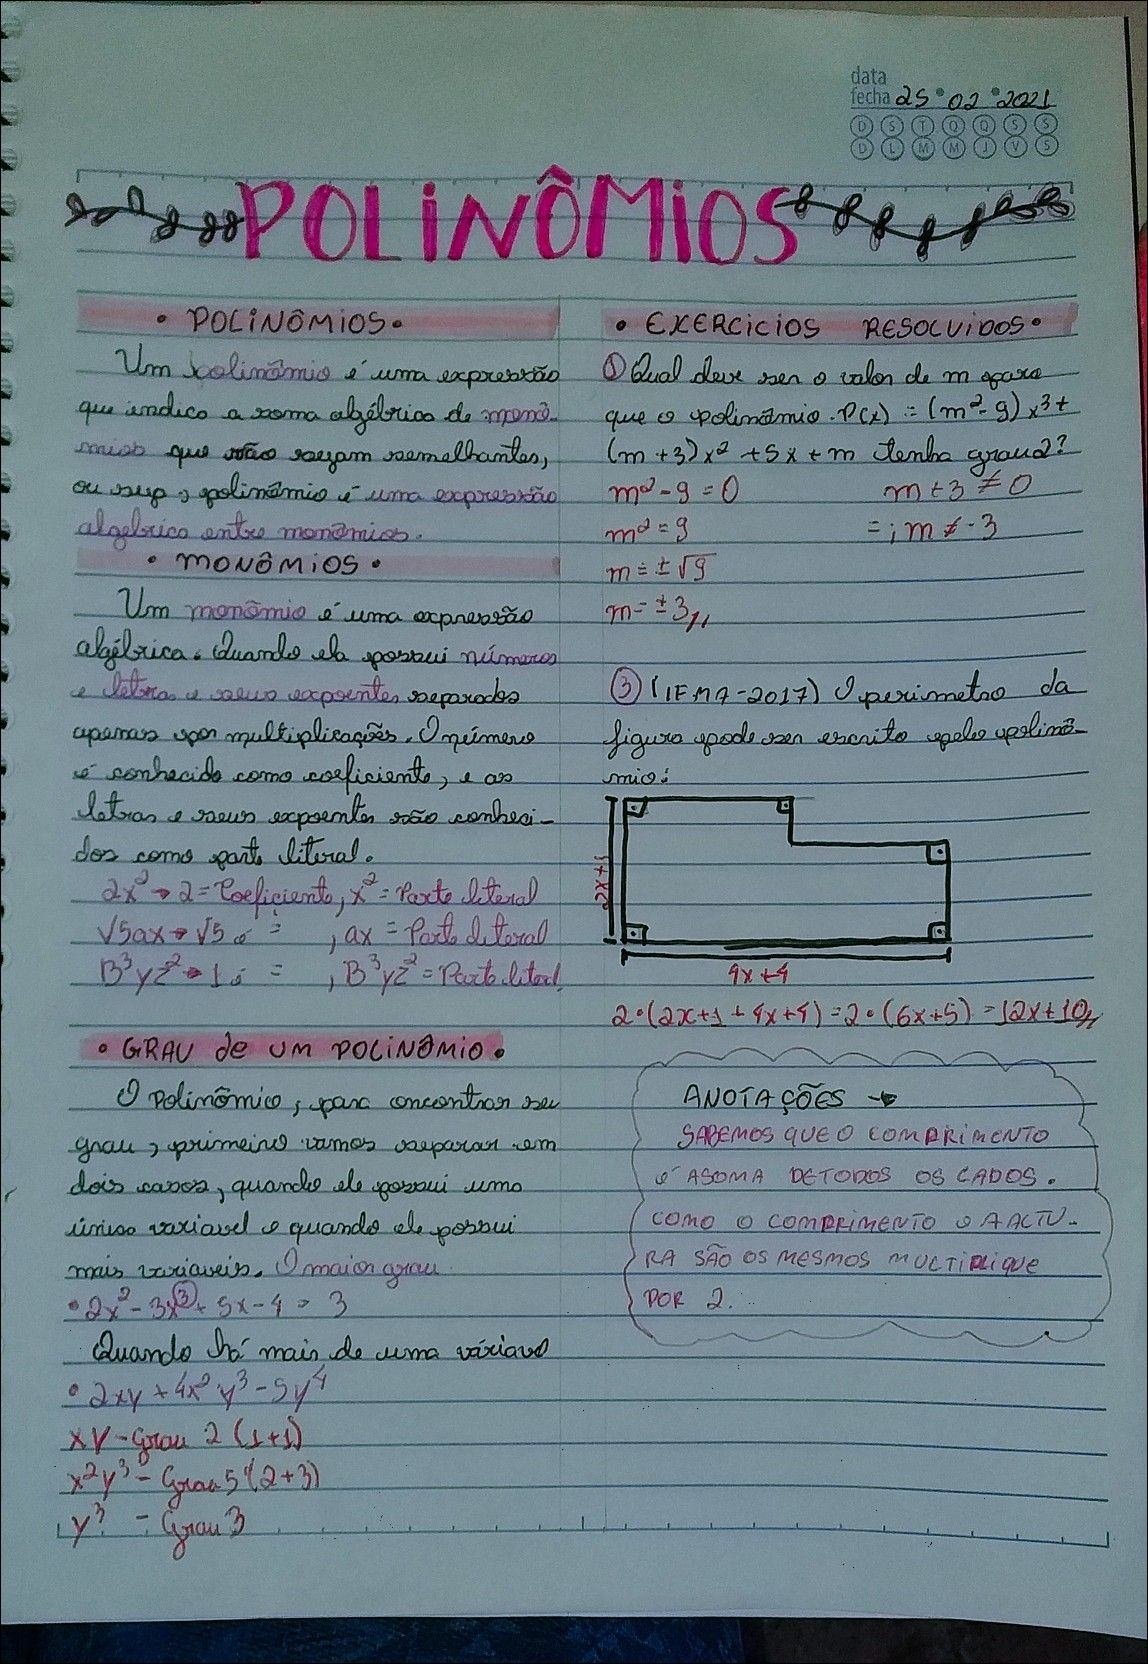 data
fecha 25 02 2021
D S T Q Q S S
D L M M J V S
POLINÔMIOS
• POLINÔMIOS •
Um polinômio é uma expressão
que indica a soma algébrica de monô-
mios que não sejam semelhantes,
ou seja, polinômio é uma expressão
algebrica entre monômios.
• MONÔMIOS •
Um monômio é uma expressão
algébrica. Quando ela possui números
e letras e seus expoentes separados
apenas por multiplicações. O número
é conhecido como coeficiente, e as
letras e seus expoentes são conheci-
dos como parte literal.
2x² → 2 = Coeficiente, x² = Parte literal
√5ax → √5 é = , ax = Parte literal
B³yz² → 1 é = , B³yz² = Parte literal
• GRAU de UM POLINÔMIO •
O Polinômio, para encontrar seu
grau, primeiro vamos separar em
dois casos, quando ele possui uma
única variavel e quando ele possui
mais variaveis. O maior grau
• 2x² - 3x³ + 5x - 4 = 3
Quando há mais de uma váriavel
• 2xy + 4x² y³ - 5y⁴
xy - Grau 2 (1+1)
x²y³ - Grau 5 (2+3)
y³ - Grau 3
• EXERCICIOS RESOLVIDOS •
① Qual deve ser o valor de m para
que o polinômio P(x) = (m² - 9) x³ +
(m + 3) x² + 5x + m tenha grau 2?
m² - 9 = 0 m + 3 ≠ 0
m² = 9 = ; m ≠ - 3
m = ± √9
m = ± 3 //
③ (IFMA - 2017) O perimetro da
figura pode ser escrito pelo polinô-
mio:
2x+1
4x+4
2 • (2x+1 + 4x+4) = 2 • (6x+5) = 12x+10 //
ANOTAÇÕES →
SABEMOS QUE O COMPRIMENTO
É A SOMA DE TODOS OS LADOS.
COMO O COMPRIMENTO e A ALTU-
RA SÃO OS MESMOS MULTIPLIQUE
POR 2.